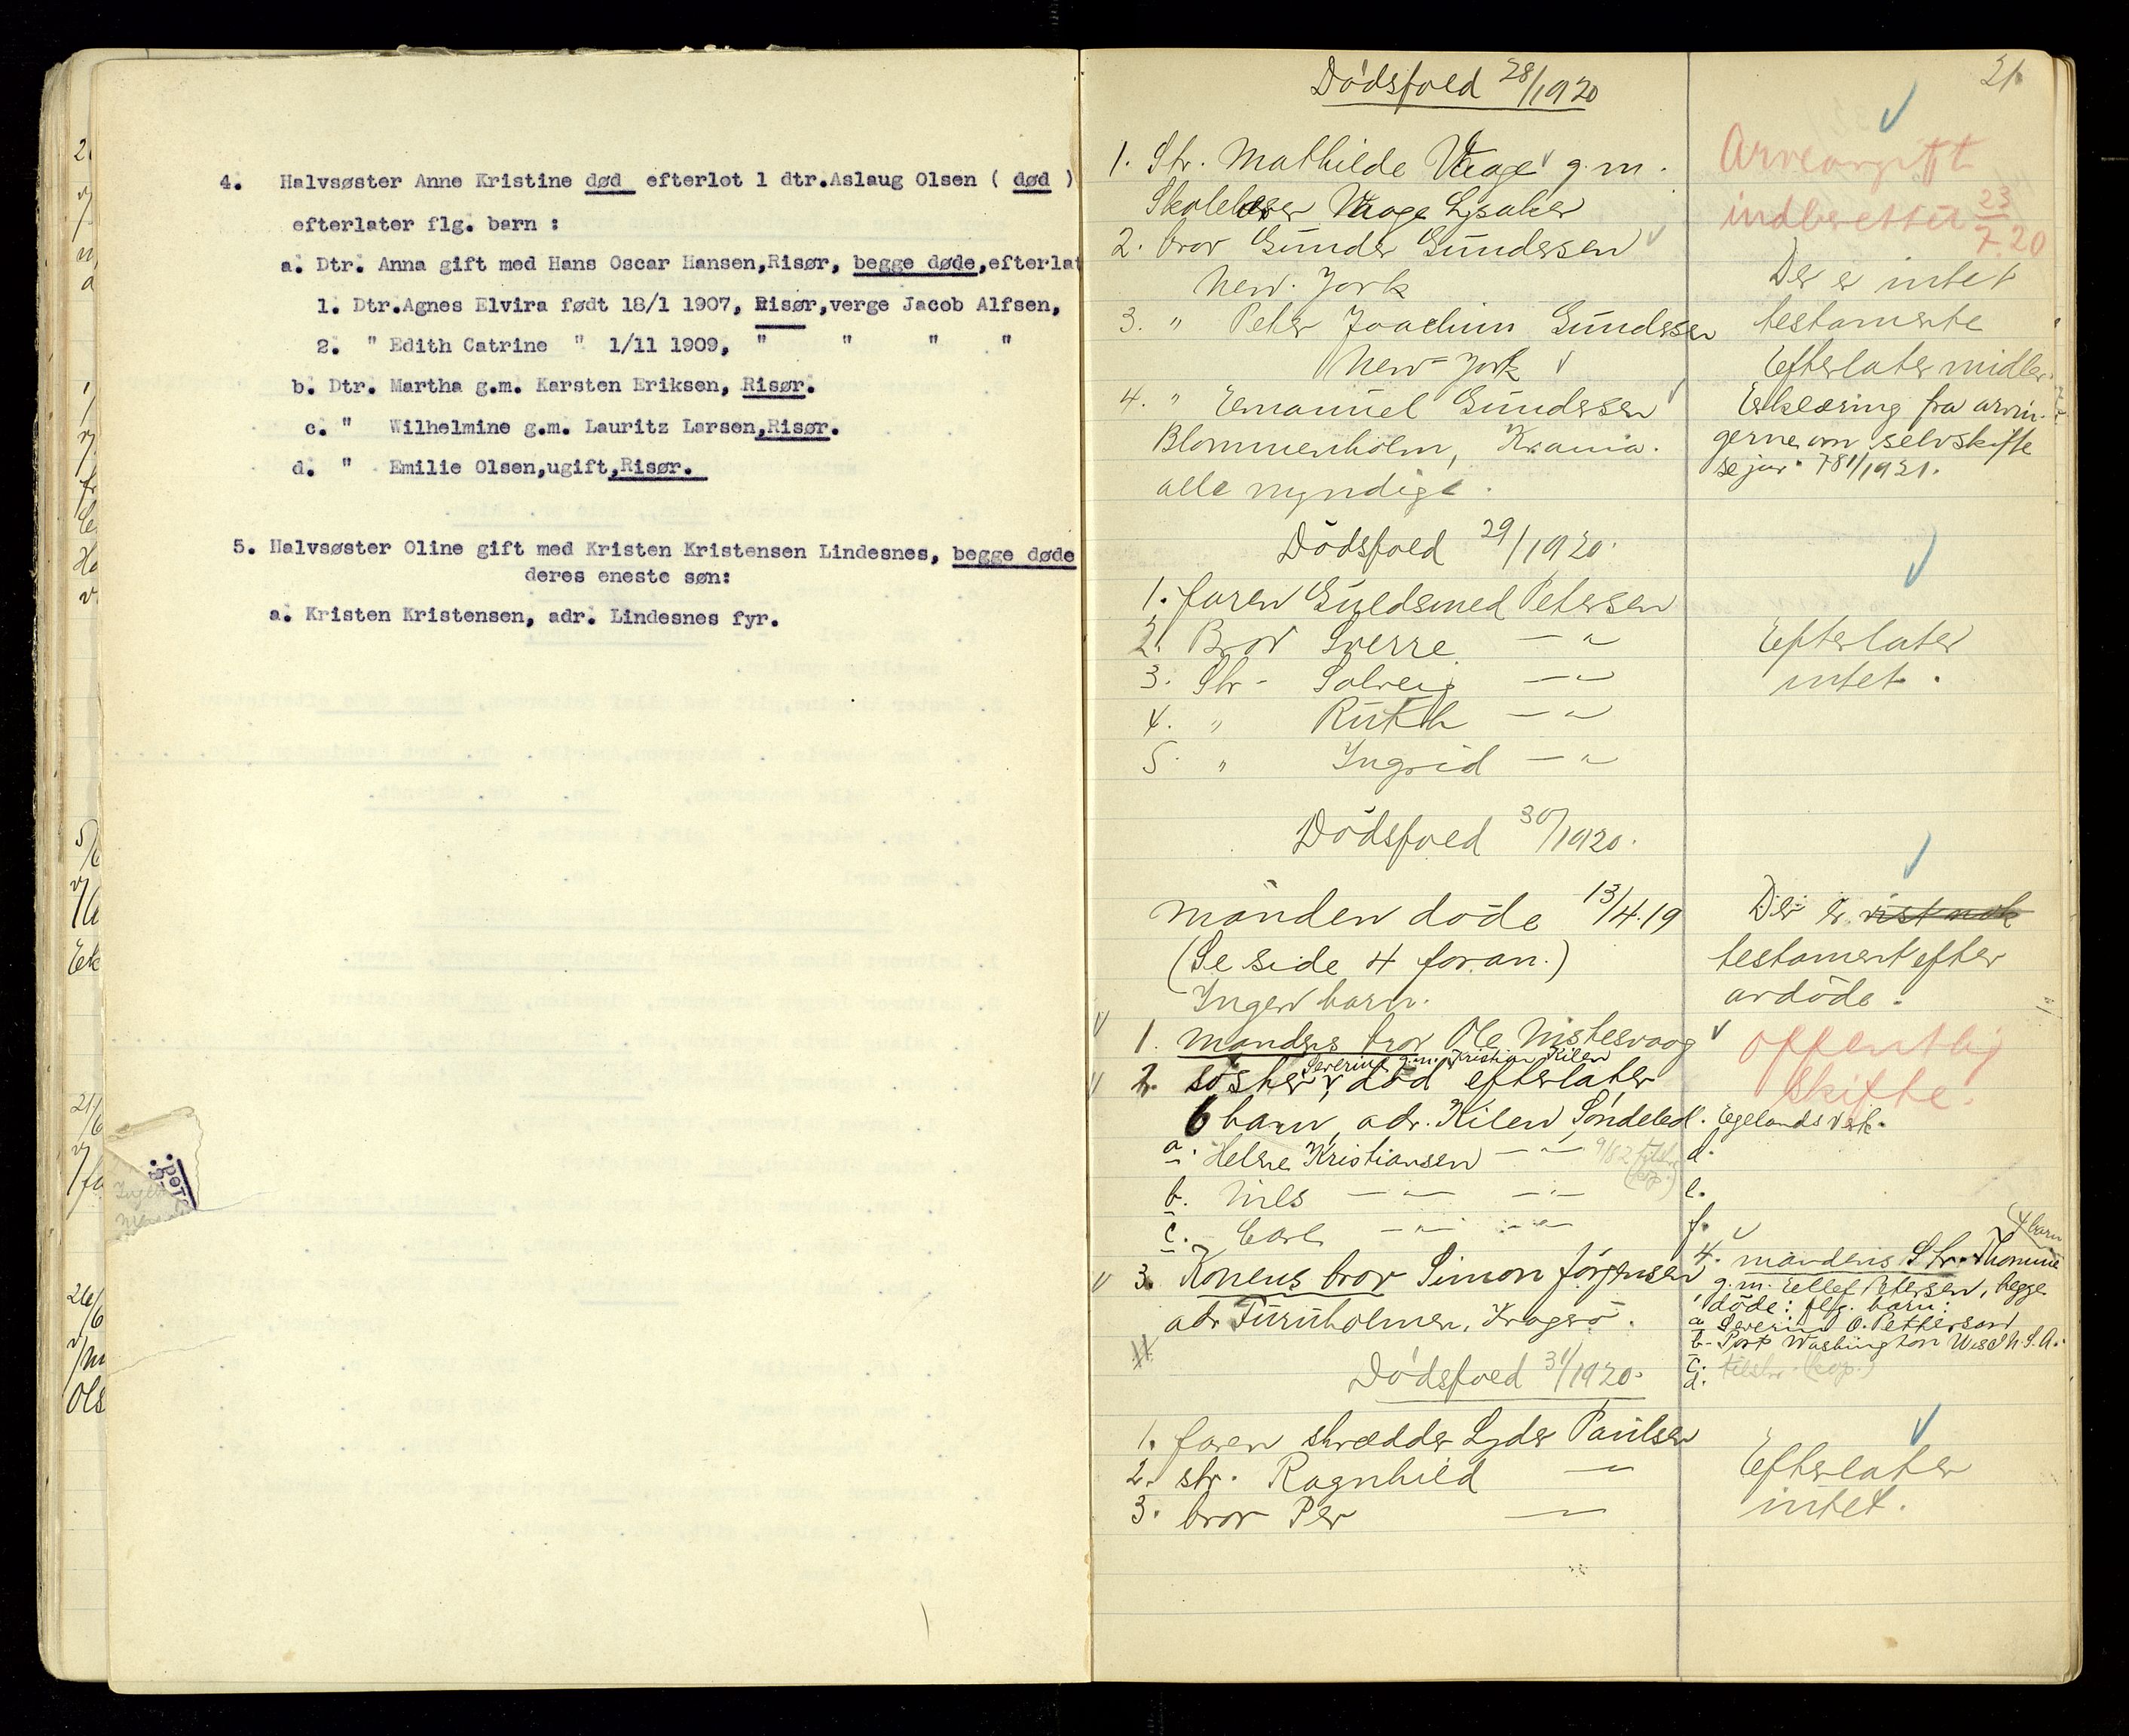 4. Halvsøster Anne Kristine død efterlot 1 dtr.Aslaug Olsen ( død )
efterlater flg. barn :
a. Dtr. Anna gift med Hans Oscar Hansen,Risør, begge døde,efterlat
1. Dtr.Agnes Elvira født 18/1 1907, Risør,verge Jacob Alfsen,
2. " Edith Catrine " 1/11 1909, " " " "
b. Dtr. Martha g.m. Karsten Eriksen, Risør.
c. " Wilhelmine g.m. Lauritz Larsen,Risør.
d. " Emilie Olsen,ugift,Risør.
5. Halvsøster Oline gift med Kristen Kristensen Lindesnes, begge døde
deres eneste søn:
a. Kristen Kristensen, adr. Lindesnes fyr.
21.
Dödsfald 28/1920
1. Str. Mathilde Vaage g.m.
Skolelærer Vaage Lysaker
2. bror Gunder Gundersen
New. York
3. " Peter Joachim Gundersen
New-York
4. " Emanuel Gundersen
Blommenholm, Krania.
alle myndige.
Arveavgift
indberettet 23/7. 20
Der er intet
testamente
Efterlater midler.
Erklæring fra arvin-
gerne om selvskifte
se jur. 781/1921.
Dödsfald 29/1920.
1. faren Guldsmed Petersen
2. Bror Sverre — " —
3. Str- Solveig — " —
4. " Ruth — " —
5. " Ingrid — " —
Efterlater
intet.
Dödsfald 30/1920.
Manden döde 13/4.19
(Se side 4 foran.)
Ingen barn.
1. mandens bror Ole Nistesvaag
Severine g.m. Kristian Kilen
2. söster, död efterlater
6 barn, adr. Kilen Söndeled. Egelands Verk.
a. Helene Kristiansen — " —
b. Nils — " — — " —
c. Carl — " — — " —
3. Konens bror Simon Jörgensen
adr Furuholmen, Kragerö.
Der er vist nok
testament efter
avdöde.
offentlig
skifte.
d.
e.
f.
4 barn
4. mandens Str. Thomine
g.m. Ellef Petersen, begge
döde: flg. barn:
a Severin O. Petterson
b- Port Washington Wisc N. S. A.
c.
d.
Dödsfald 31/1920.
1. faren skrædder Lyder Paulsen
2. str. Ragnhild —
3. bror Per —
Efterlater
intet.